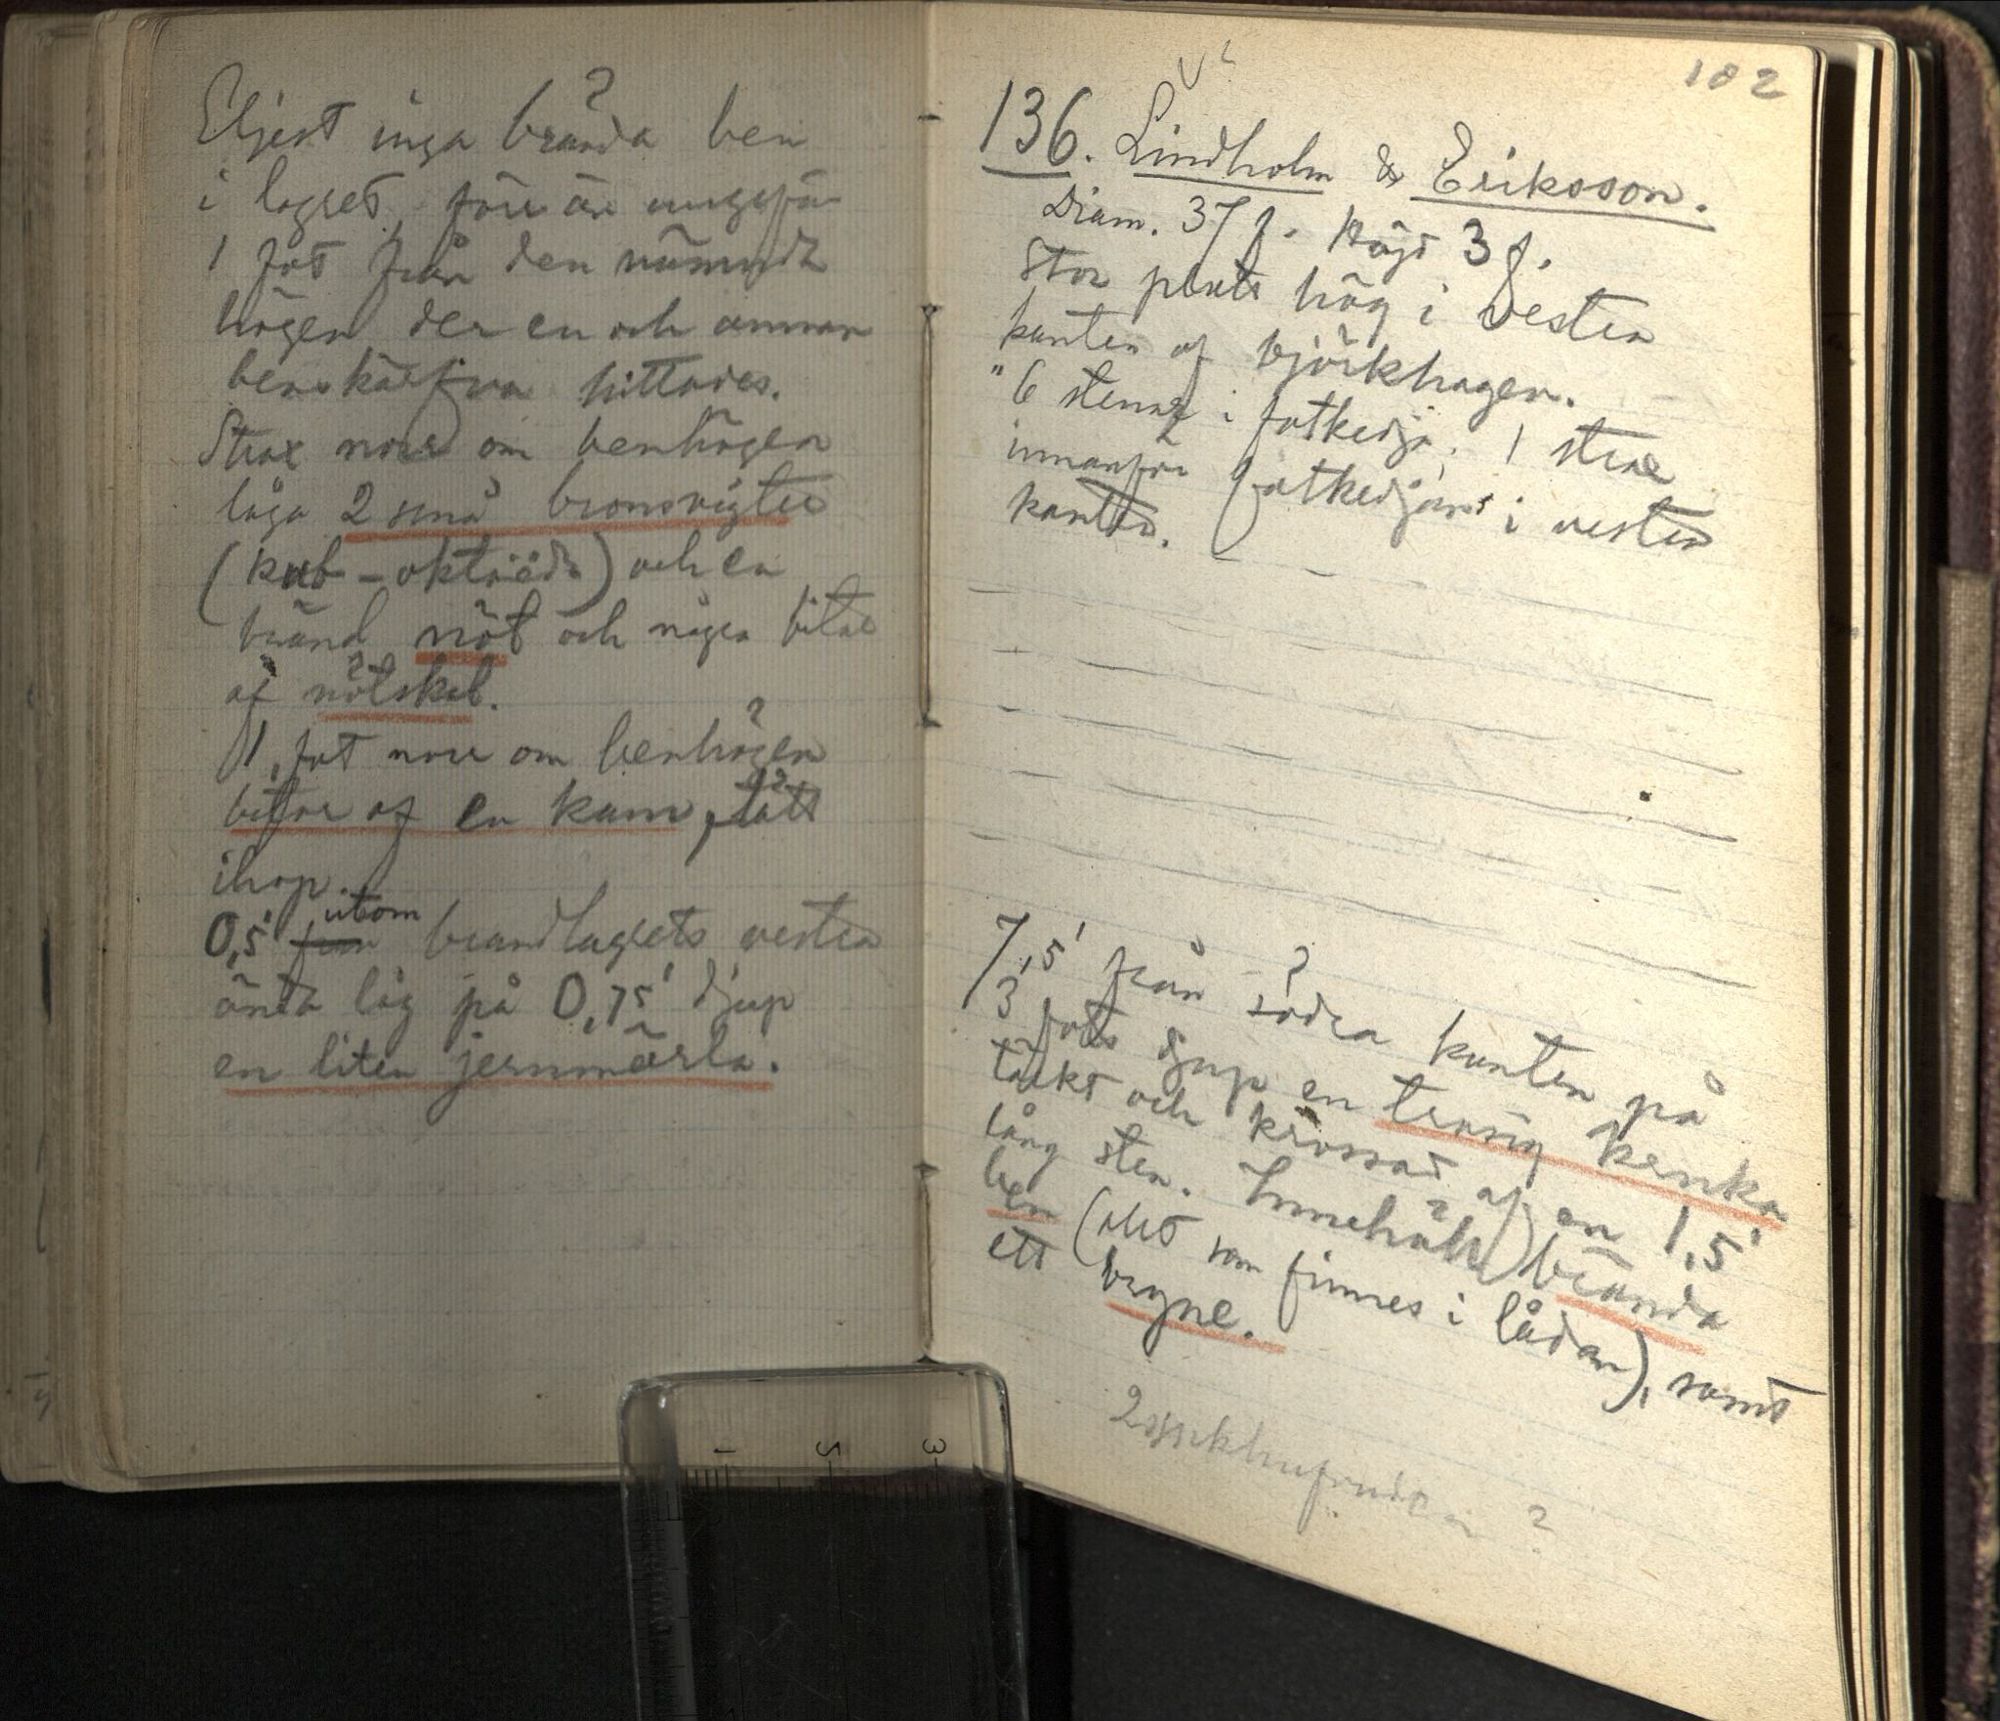 Eljest inga brända ben
i lagret, förr än ungefär
1 fot från den nämnda
högen der en och annan
benskärfva hittades.
Strax norr om benhögen
låga 2 små bronsvigter
(kub-oktaëdr) och en
bränd nöt och några bitar
af nötskal.
1 fot norr om benhögen
bitar af en kam, tätt
ihop.
0,5' från utom brandlagrets vestra
ända låg på 0,75' djup
en liten jernmärla.
102
136. Lindholm & Eriksson.
Diam. 37 f. Höjd 3 f.
Stor platt hög i vestra
kanten af björkhagen.
6 stenar i fotkedja; 1 sten
innanför fotkedjan i vestra
kanten.
7,5' från södra kanten på
3 fots djup en trasig kruka
täckt och krossad af en 1,5'
lång sten. Innehöll brända
ben (allt som finnes i lådan), samt
ett bryne.
2